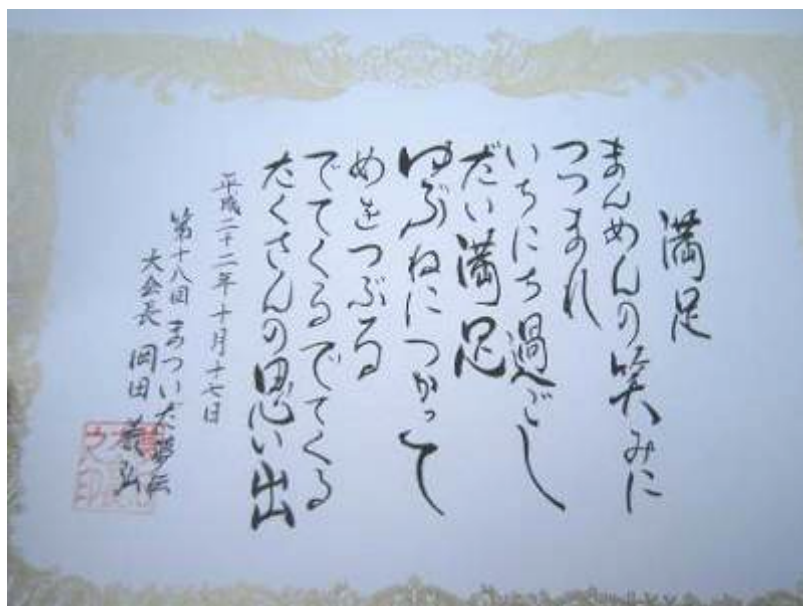 満足
まんめんの笑みに
つつまれ
いちにち過ごし
だい満足
ゆぶねにつかって
めをつぶる
でてくるでてくる
たくさんの思い出
平成二十二年十月十七日
第十八回まついだ夢伝
大会長 岡田義弘